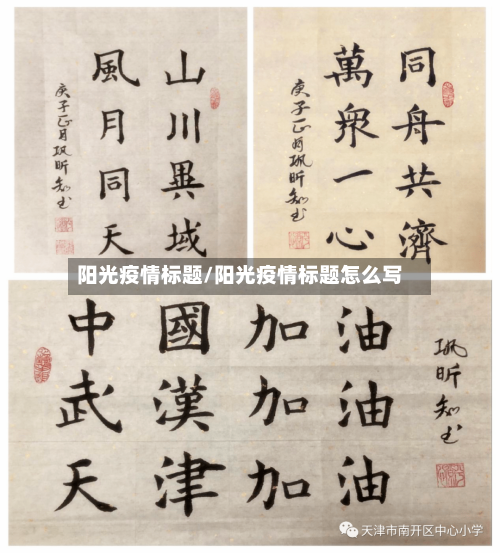 山川異域
風月同天
庚子正月珮昕书
同舟共濟
萬衆一心
庚子正月珮昕书
阳光疫情标题/阳光疫情标题怎么写
中國加油
武漢加油
天津加油
珮昕书
天津市南开区中心小学